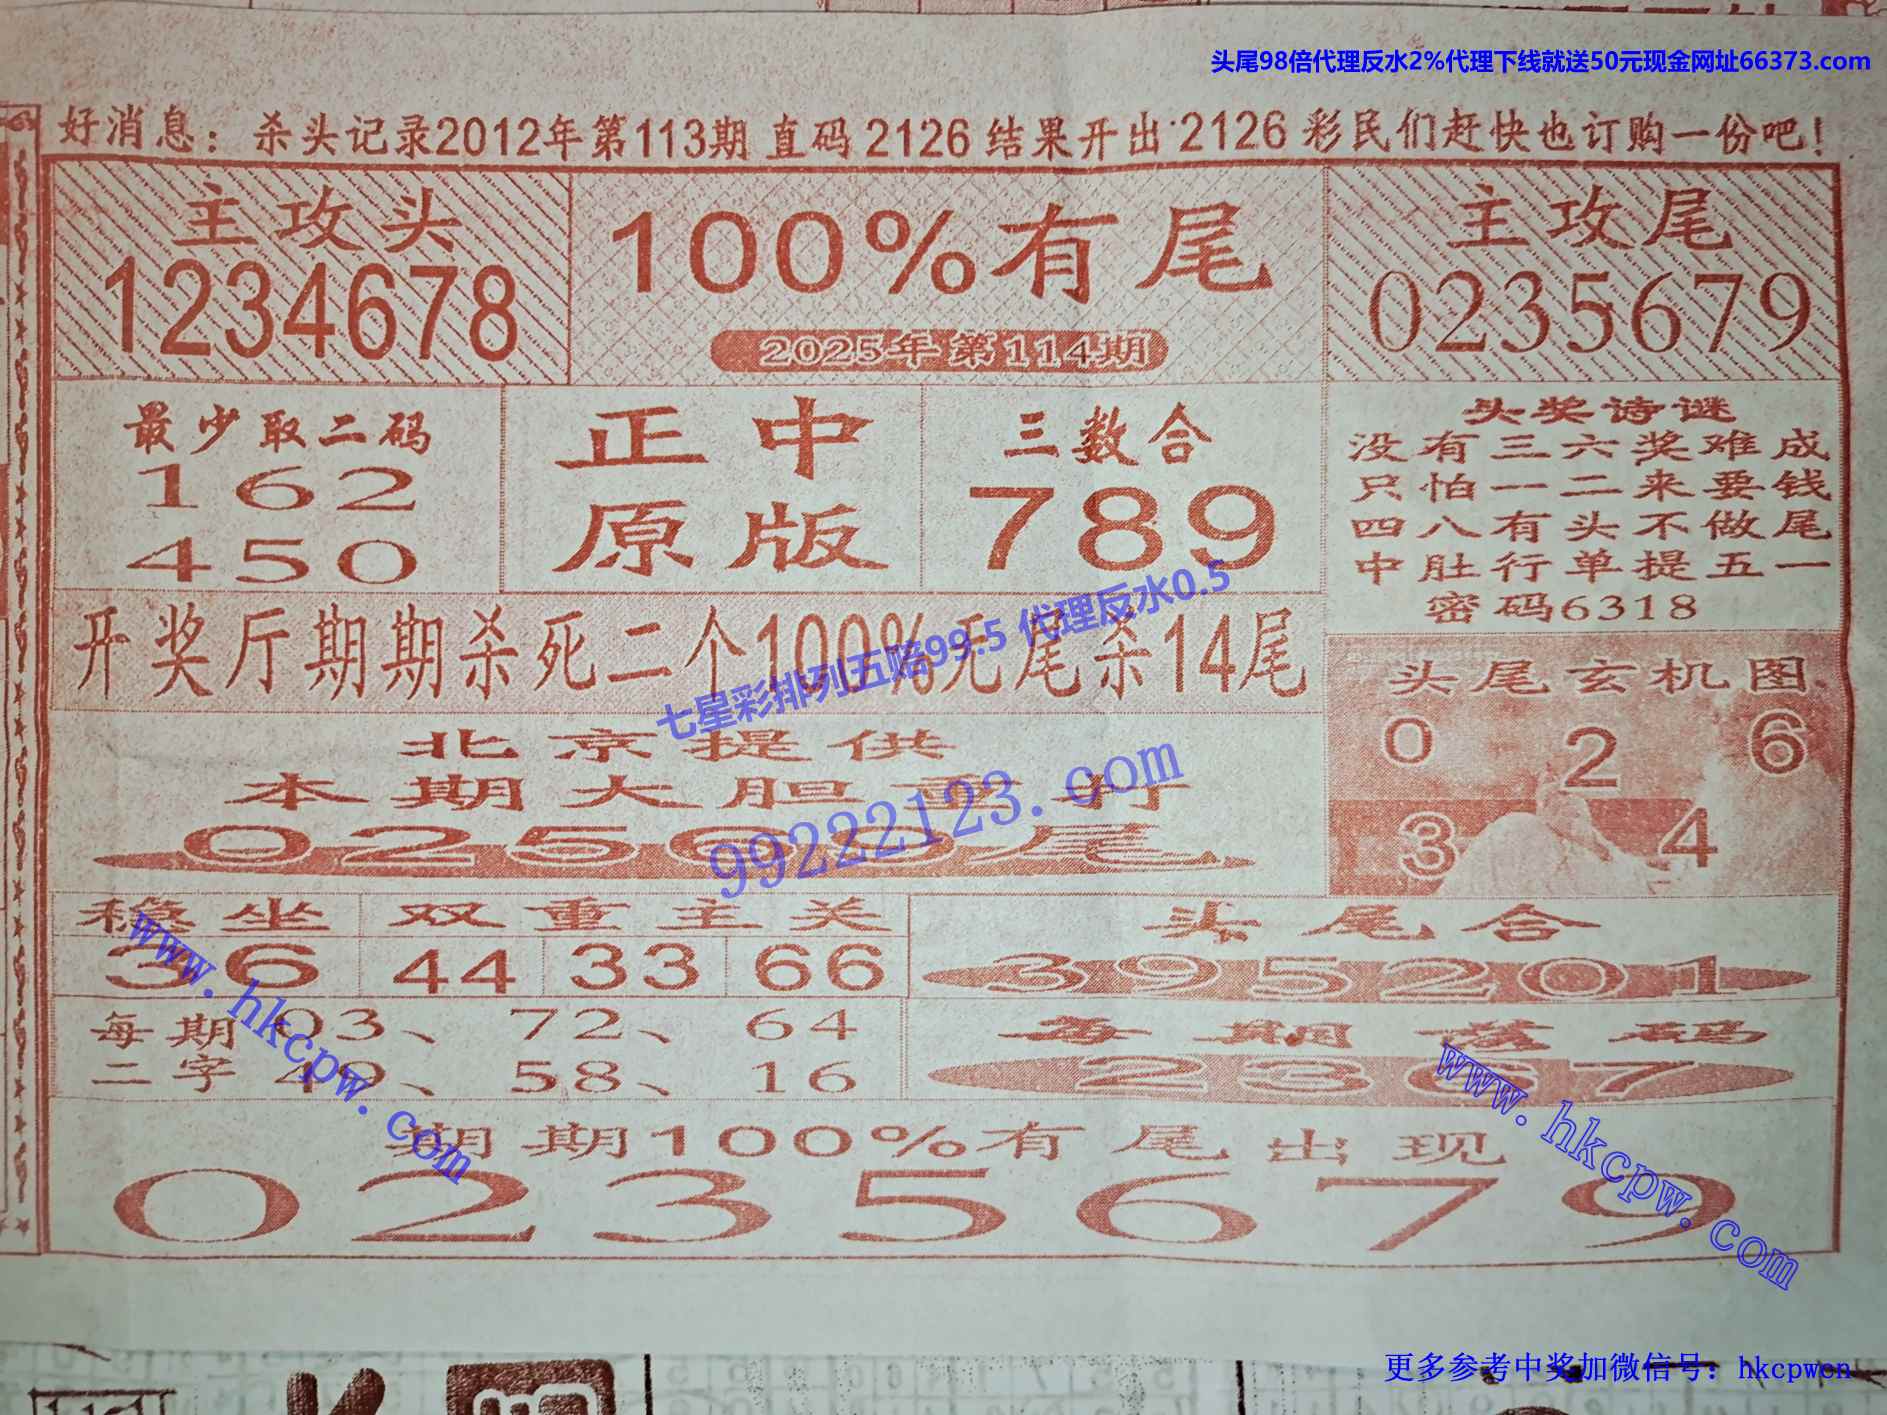 头尾98倍代理反水2%代理下线就送50元现金网址66373.com
好消息：杀头记录2012年第113期 直码 2126 结果开出 2126 彩民们赶快也订购一份吧！
主攻头
1234678
100%有尾
2025年第114期
主攻尾
0235679
最少取二码
162
450
正中
原版
三数合
789
头奖诗谜
没有三六奖难成
只怕一二来要钱
四八有头不做尾
中肚行单提五一
密码6318
开奖厅期期杀死二个100%无尾杀14尾
七星彩排列五赔99.5 代理反水0.5
头尾玄机图
0 2 6
3 4
北京提供
本期大胆重打
尾
99222123.com
稳坐 双重主关
36 44 33 66
头尾合
395201
每期 03、 72、 64
二字 49、 58、 16
每期落码
2367
www.hkcpw.com
www.hkcpw.com
期期100%有尾出现
0235679
更多参考中奖加微信号：hkcpwcn